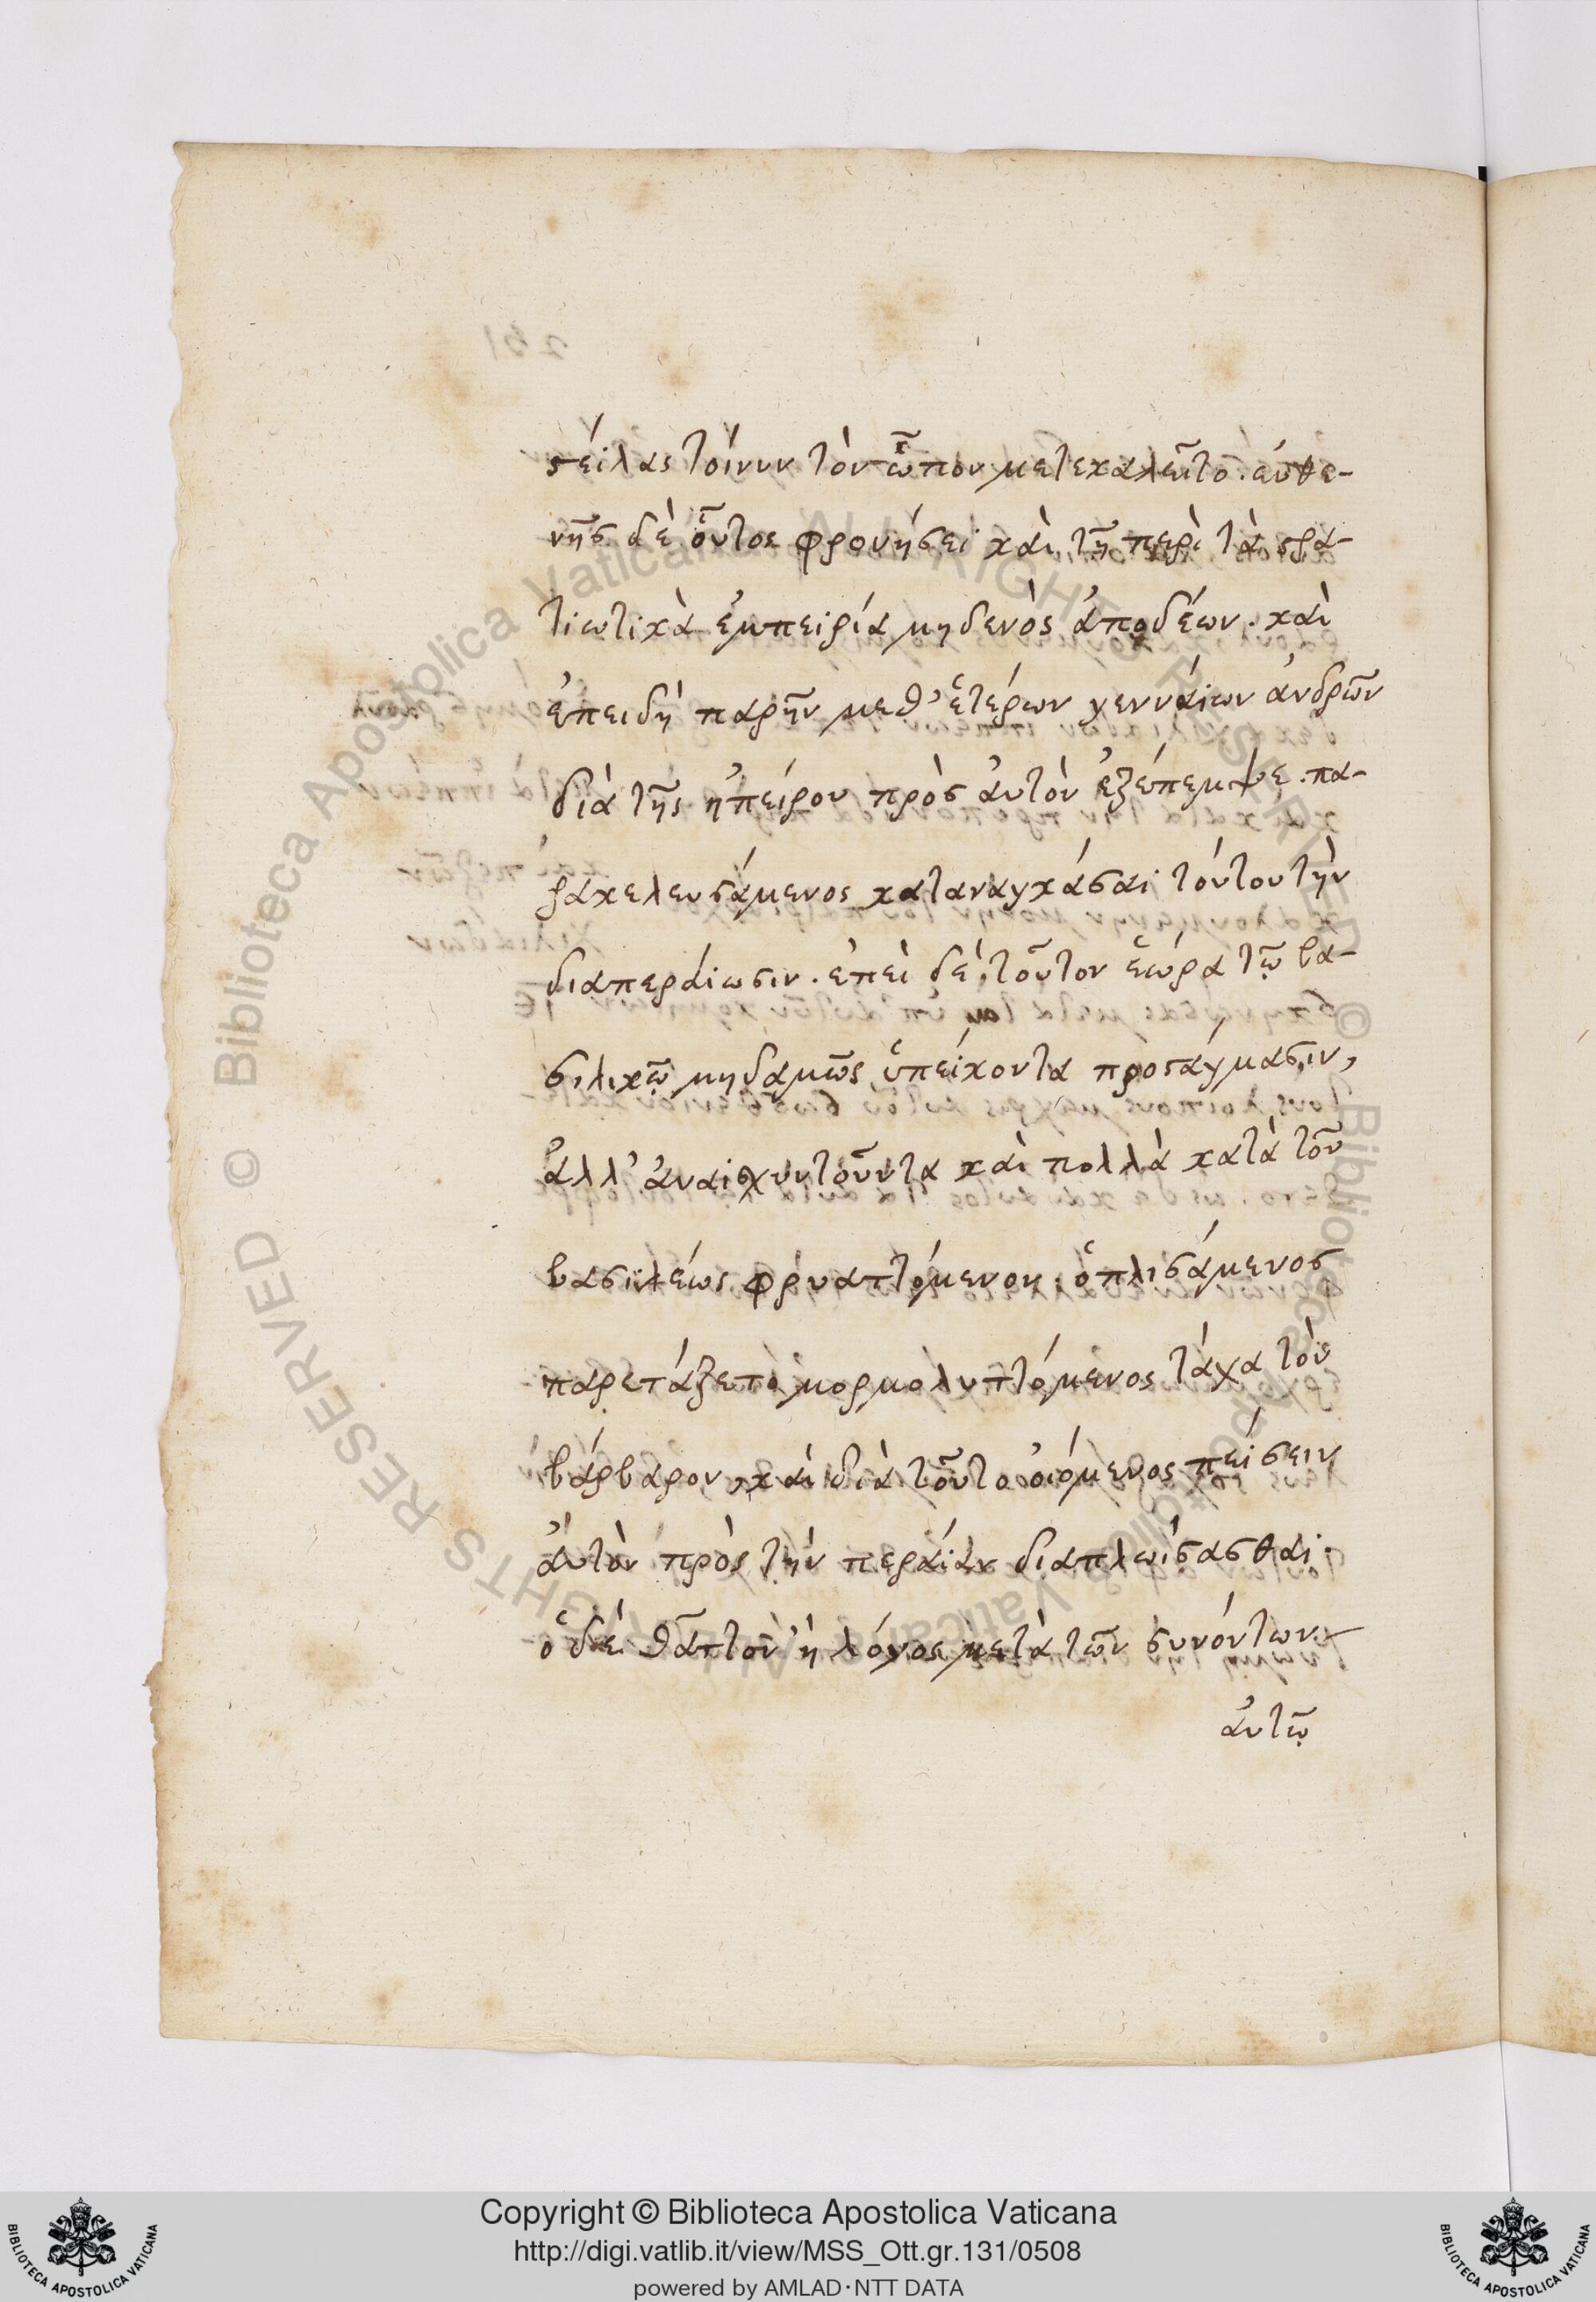 στείλας τοίνυν τὸν ὦπον μετεκαλεῖτο. εὐθε-
νὴς δὲ οὗτος φρονήσει καὶ τῇ περὶ τὰ στρα-
τιωτικὰ ἐμπειρία μηδενὸς ἀποδέων. καὶ
ἐπειδὴ παρῆν μεθ' ἑτέρων γενναίων ἀνδρῶν
διὰ τῆς ἠπείρου πρὸς αὐτὸν ἐξέπεμψε. πα-
ρακελευσάμενος καταναγκάσαι τούτου τὴν
διαπεραίωσιν. ἐπεὶ δὲ τοῦτον ἑώρα τῷ βα-
σιλικῷ μηδαμῶς ὑπείκοντα προστάγμασιν,
ἀλλ' ἀναισχυντοῦντα καὶ πολλὰ κατὰ τοῦ
βασιλέως φρυαττόμενον. ὁπλισάμενος
παρετάξετο μορμολυττόμενος τάχα τὸν
βάρβαρον, καὶ διὰ τοῦτο οἰόμενος πείσειν
αὐτὸν πρὸς τὴν περαίαν διαπλωίσασθαι.
ὁ δὲ θᾶττον ἢ λόγος μετὰ τῶν συνόντων
αὐτῷ
Copyright © Biblioteca Apostolica Vaticana
http://digi.vatlib.it/view/MSS_Ott.gr.131/0508
powered by AMLAD·NTT DATA
BIBLIOTECA APOSTOLICA VATICANA
BIBLIOTECA APOSTOLICA VATICANA